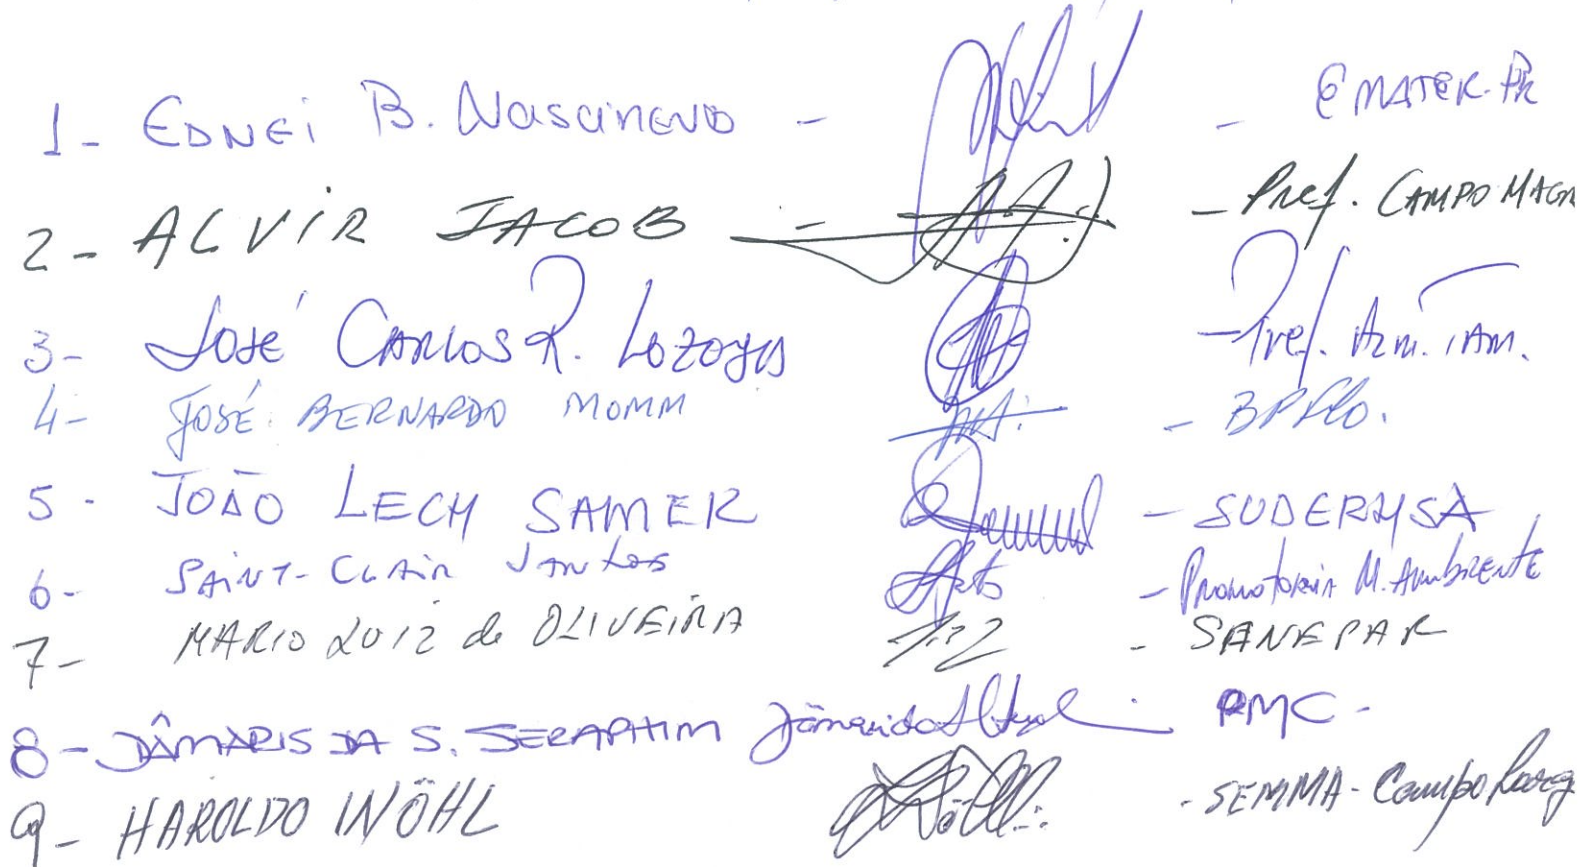 1- EDNEi B. Nascimento - - EMATER-PR
2- ALViR JACOB - - Pref. CAMPO MAGR
3- José CARLOS R. Lozoya - Pref. Alm. TAM.
4- JOSÉ BERNARDO MOMM - BPFlo.
5- JOÃO LECH SAMEK - SUDERHSA
6- SAiNT-CLAiR SANtos - Promotoria M. Ambiente
7- MARIO LUIZ de OLIVEiRA - SANEPAR
8- DÂMARIS DA S. SERAPHIM - PMC -
9- HAROLDO WÖHL - SEMMA - Campo Larg